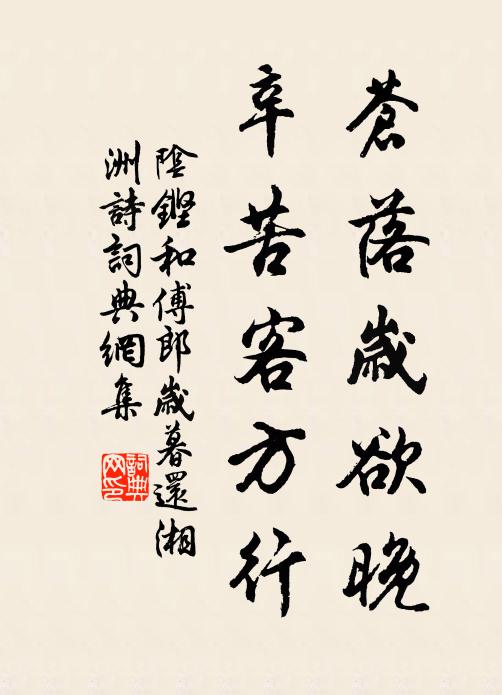 蒼落歲欲晚
辛苦客方行
陰鏗和傅郎歲暮還湘
洲詩詞典網集
詞典網印